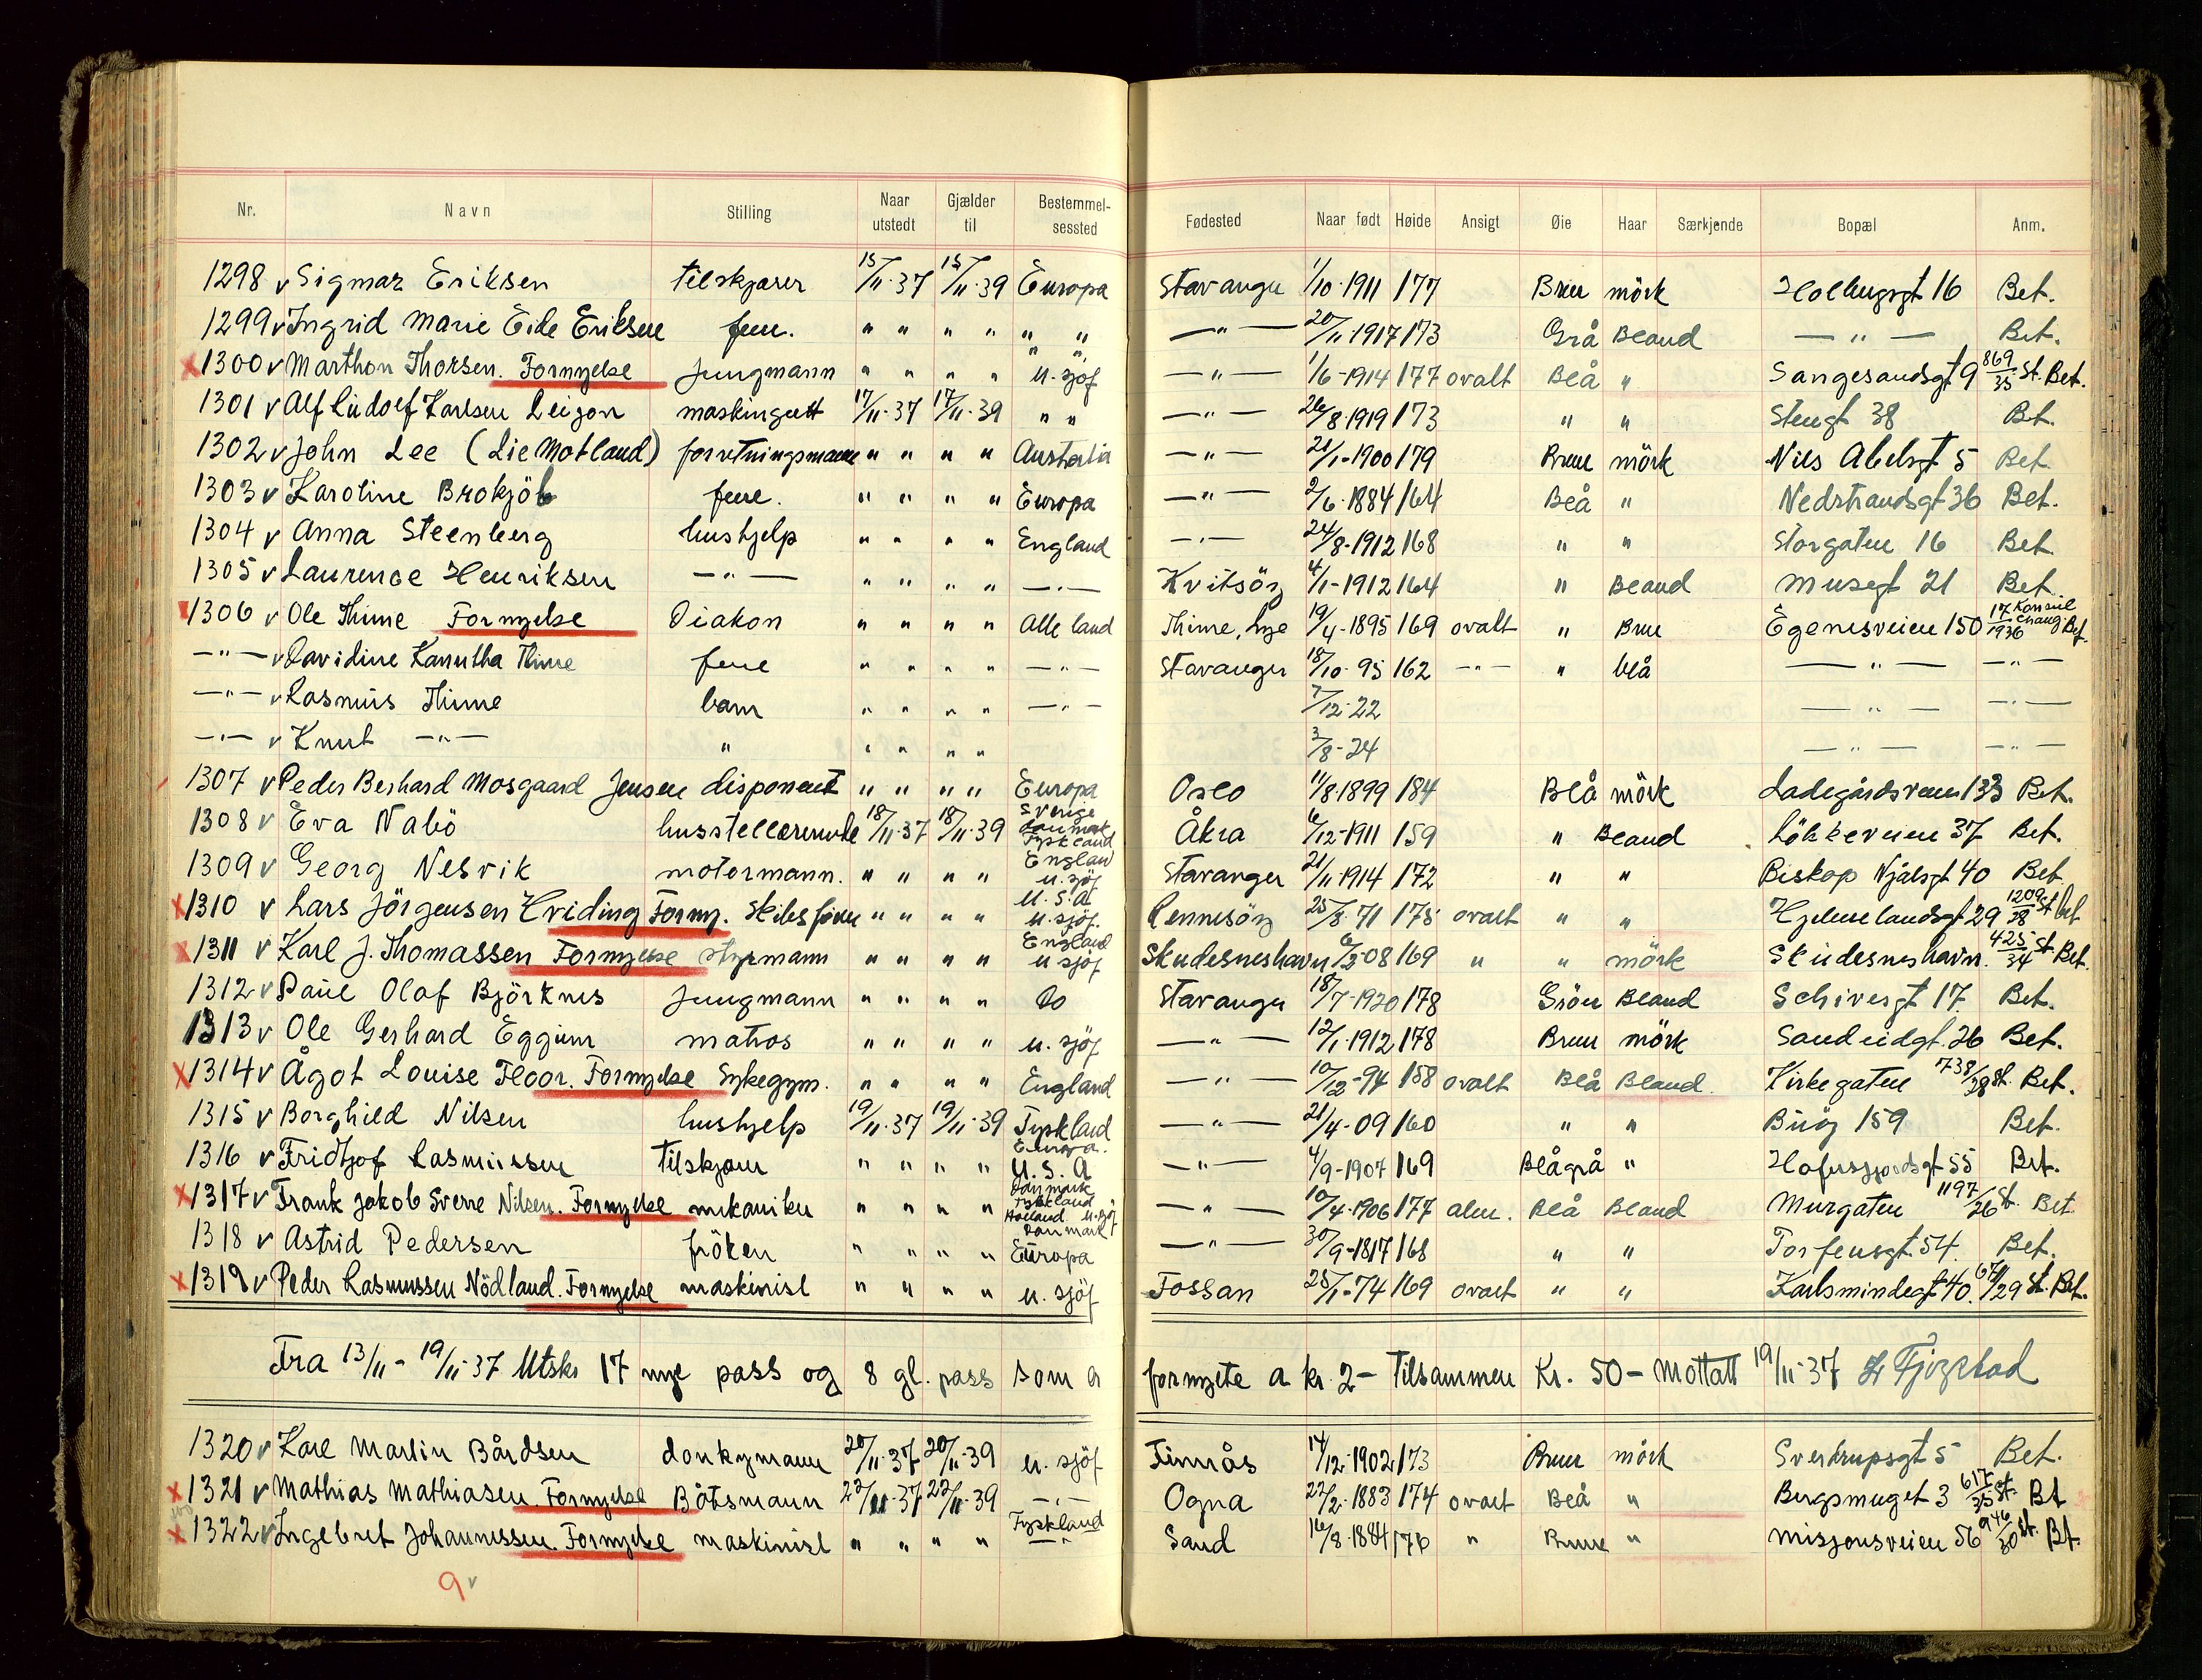 Nr. Navn Stilling Naar utstedt Gjælder til Bestemmelsessted Fødested Naar født Høide Ansigt Øie Haar Særkjende Bopæl Anm.
1298 v Sigmar Eriksen tilskjærer 15/11-37 15/11-39 Europa Stavanger 1/10-1911 177 Brun mörk Holbergsgt 16 Bet.
1299 v Ingrid Marie Eide Eriksen frue. " " " " " " —"— 20/11-1917 173 Grå Bland —"— Bet.
x 1300 v Marthon Thorsen. Fornyelse Jungmann " " " " " " u. sjöf —"— 1/6-1914 177 ovalt Blå " Sangesandsgt 9 869/35 St. Bet.
1301 v Alf Ludolf Karlsen Leigon maskingutt 17/11-37 17/11-39 " " —"— 26/8-1919 173 " " Stengt 38 Bet.
1302 v John Lee (Lie Motland) forretningsmann " " " " Australia —"— 21/1-1900 179 Brun mörk Nils Abelsgt 5 Bet
1303 v Karoline Brokjöb frue. " " " " Europa —"— 2/6-1884 164 Blå " Nedstrandsgt 36 Bet.
1304 v Anna Steenberg hushjelp " " " " England —"— 24/8-1912 168 " " Storgaten 16 Bet
1305 v Laurence Henriksen —"— " " " " —"— Kvitsöy 4/1-1912 164 " Bland Musegt 21 Bet
x 1306 v Ole Thime Fornyelse Diakon " " " " Alle land Thime, Lye 19/4-1895 169 ovalt " Brun Egenesveien 150 17/1936 Konsul Chang Bet.
—"— v Davidine Kanutha Thime frue " " " " —"— Stavanger 18/10-95 162 —"— " blå —"— —"—
—"— v Rasmus Thime barn " " " " —"— 7/12-22 —"— —"—
—"— v Knut —"— " " " " " 3/8-24 —"— —"—
1307 v Peder Berhard Mosgaard Jensen disponent " " " " Europa Oslo 11/8-1899 184 Blå mörk Ladegårdsveien 133 Bet.
1308 v Eva Nabö husstellærerinde 18/11-37 18/11-39 Sverige Danmark Tyskland Åkra 6/12-1911 159 " Bland Lökkeveien 37 Bet.
1309 v Georg Nesvik motormann. " " " " England u. sjöf Stavanger 21/11-1914 172 " " Biskop Njålsgt 40 Bet
x 1310 v Lars Jörgensen Hviding Forny. Skibsförer " " " " U.S.A u. sjöf. Rennesöy 25/8-71 175 ovalt " " Hjelmelandsgt 29 1209/28 St Bet
x 1311 v Karl J. Thomassen Fornyelse styrmann " " " " England u sjöf Skudesneshavn 6/2-08 169 " " mörk Skudesneshavn. 425/34 St. Bet.
1312 v Paul Olaf Björknes Jungmann " " " " Do Stavanger 18/7-1920 178 Grön Bland Schivesgt 17. Bet.
1313 v Ole Gerhard Eggum matros " " " " u. sjöf —"— 12/1-1912 178 Brun mörk Sandeidgt. 26 Bet.
x 1314 v Ågot Louise Floor. Fornyelse Sykegym. " " " " England —"— 10/12-94 158 ovalt Blå Bland. Kirkegaten 738/28 St. Bet.
1315 v Borghild Nilsen hushjelp 19/11-37 19/11-39 Tyskland —"— 21/4-09 160 " " Buöy 159 Bet.
1316 v Fridtjof Rasmussen Tilskjærer " " " " Europa. U.S.A —"— 4/9-1907 169 Blågrå " Hafrsfjordsgt 55 Bet.
x 1317 v Frank Jakob Sverre Nilsen. Fornyelse mekaniker " " " " Danmark Tyskland Holland u.sjöf —"— 10/4-1906 177 alm. Blå Bland Murgaten 1197/26 St. Bet
1318 v Astrid Pedersen fröken " " " " Danmark Europa —"— 30/9-1817 168 " " Torfeusgt. 54. Bet.
x 1319 v Peder Rasmussen Nödland. Fornyelse maskinist " " " " u. sjöf Fossan 25/1-74 169 ovalt " " Karlsmindegt 40. 671/29 St. Bet.
Fra 13/11 - 19/11-37 Utsk. 17 nye pass og 8 gl. pass som er fornyete a kr. 2 — Tilsammen Kr. 50 — Mottatt 19/11-37 Fjogstad
1320 v Karl Martin Bårdsen donkymann 20/11-37 20/11-39 u. sjöf Finnås 14/12-1902 173 Brun mörk Sverdrupsgt 5 Bet.
x 1321 v Mathias Mathiasen Fornyelse Båtsmann 22/11-37 22/11-39 —"— Ogna 22/2-1883 174 ovalt Blå " Bergsmuget 3 617/35 St. Bt
x 1322 v Ingebret Johannessen. Fornyelse maskinist " " " " Tyskland —"— Sand 16/8-1884 176 " Brune " Misjonsveien 56 946/30 St. Bt.
9 v